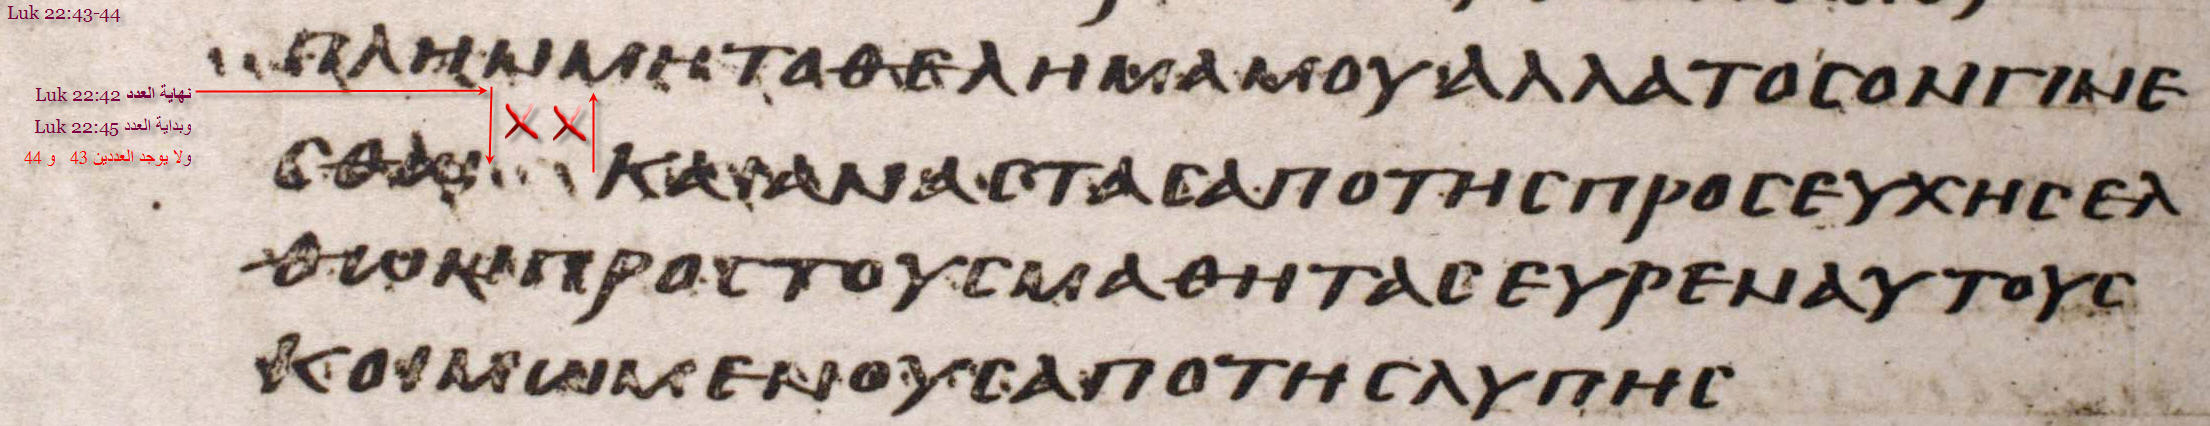 Luk 22:43-44
ΠΛΗΝΜΗΤΟΘΕΛΗΜΑΜΟΥΑΛΛΑΤΟϹΟΝΓΙΝΕ
نهاية العدد Luk 22:42
وبداية العدد Luk 22:45
ولا يوجد العددين 43 و 44
ϹΘΩ ΚΑΙΑΝΑϹΤΑϹΑΠΟΤΗϹΠΡΟϹΕΥΧΗϹΕΛ
ΘΩΝΠΡΟϹΤΟΥϹΜΑΘΗΤΑϹΕΥΡΕΝΑΥΤΟΥϹ
ΚΟΙΜΩΜΕΝΟΥϹΑΠΟΤΗϹΛΥΠΗϹ